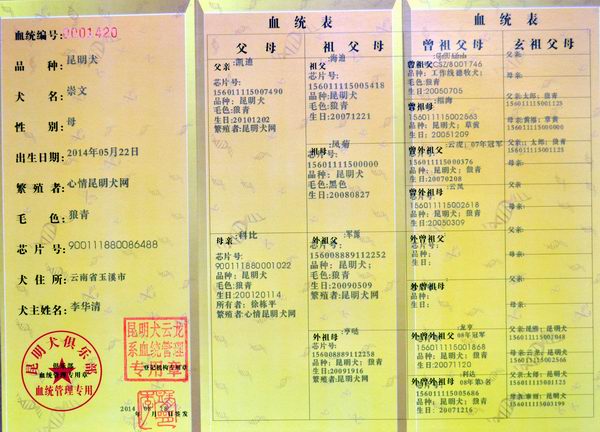 血统编号:0001420
品 种:昆明犬
犬 名:崇文
性 别:母
出生日期:2014年05月22日
繁殖者:心情昆明犬网
毛 色:狼青
芯片号:900111880086488
犬住所:云南省玉溪市
犬主姓名:李华清
昆明犬俱乐部
血统管理专用章
血统管理专用
昆明犬云龙
系血统管理
专用章
登记机构专用章
2014
月 日签发
血 统 表
父 母
祖 父 母
父亲:凯迪
芯片号:
156011115007490
品种:昆明犬
毛色:狼青
生日:20101202
繁殖者:昆明犬网
母亲:科比
芯片号:
900111880001022
品种:昆明犬
毛色:狼青
生日:201200114
所有者:徐栋平
繁殖者:心情昆明犬网
祖父:海迪
芯片号:
156011115005418
品种:昆明犬
毛色:狼青
生日:20071221
祖母:凤菊
芯片号:
15601111500000
品种:昆明犬
毛色:黑色
生日:20080827
外祖父:军源
芯片号:
156008889112252
品种:昆明犬;
毛色:狼青
生日:20090509
繁殖者:昆明犬网
外祖母:亨哒
芯片号:
156008889112258
品种:昆明犬
毛色:狼青
生日:20091916
繁殖者:昆明犬网
血 统 表
曾祖父母
玄祖父母
曾祖父
品种:工作线德牧犬;
毛色:狼青
生日:20050705
曾祖母:细海
156011115002663
品种:昆明犬;草黄
生日:20051209
曾外祖父:云虎;07年冠军
156011115000376
品种:昆明犬;狼青
生日:20070208
曾外祖母:云凤
156011115002618
品种:昆明犬;狼青
生日:20050309
外曾祖父:
芯片号:
品种:
生日:
外曾祖母:
芯片号:
品种:
生日:
外曾外祖父:龙亨
08年冠军
156011115001868
品种:昆明犬;狼青
生日:20071120
外曾外祖母:利达
08年第3名
156011115005686
品种:昆明犬;狼青
生日:20071216
父亲:
母亲:
父亲:太郎;狼青
156011115001125
母亲:黄福;草黄
15601111500000
父亲:太郎;狼青
156011115001125
母亲:
父亲:
母亲:
父亲:
母亲:
父亲:
母亲:
父亲:昆明犬
母亲:昆明犬
父亲:太郎;昆明犬
156011115001125
母亲:昆明犬
156011115003199